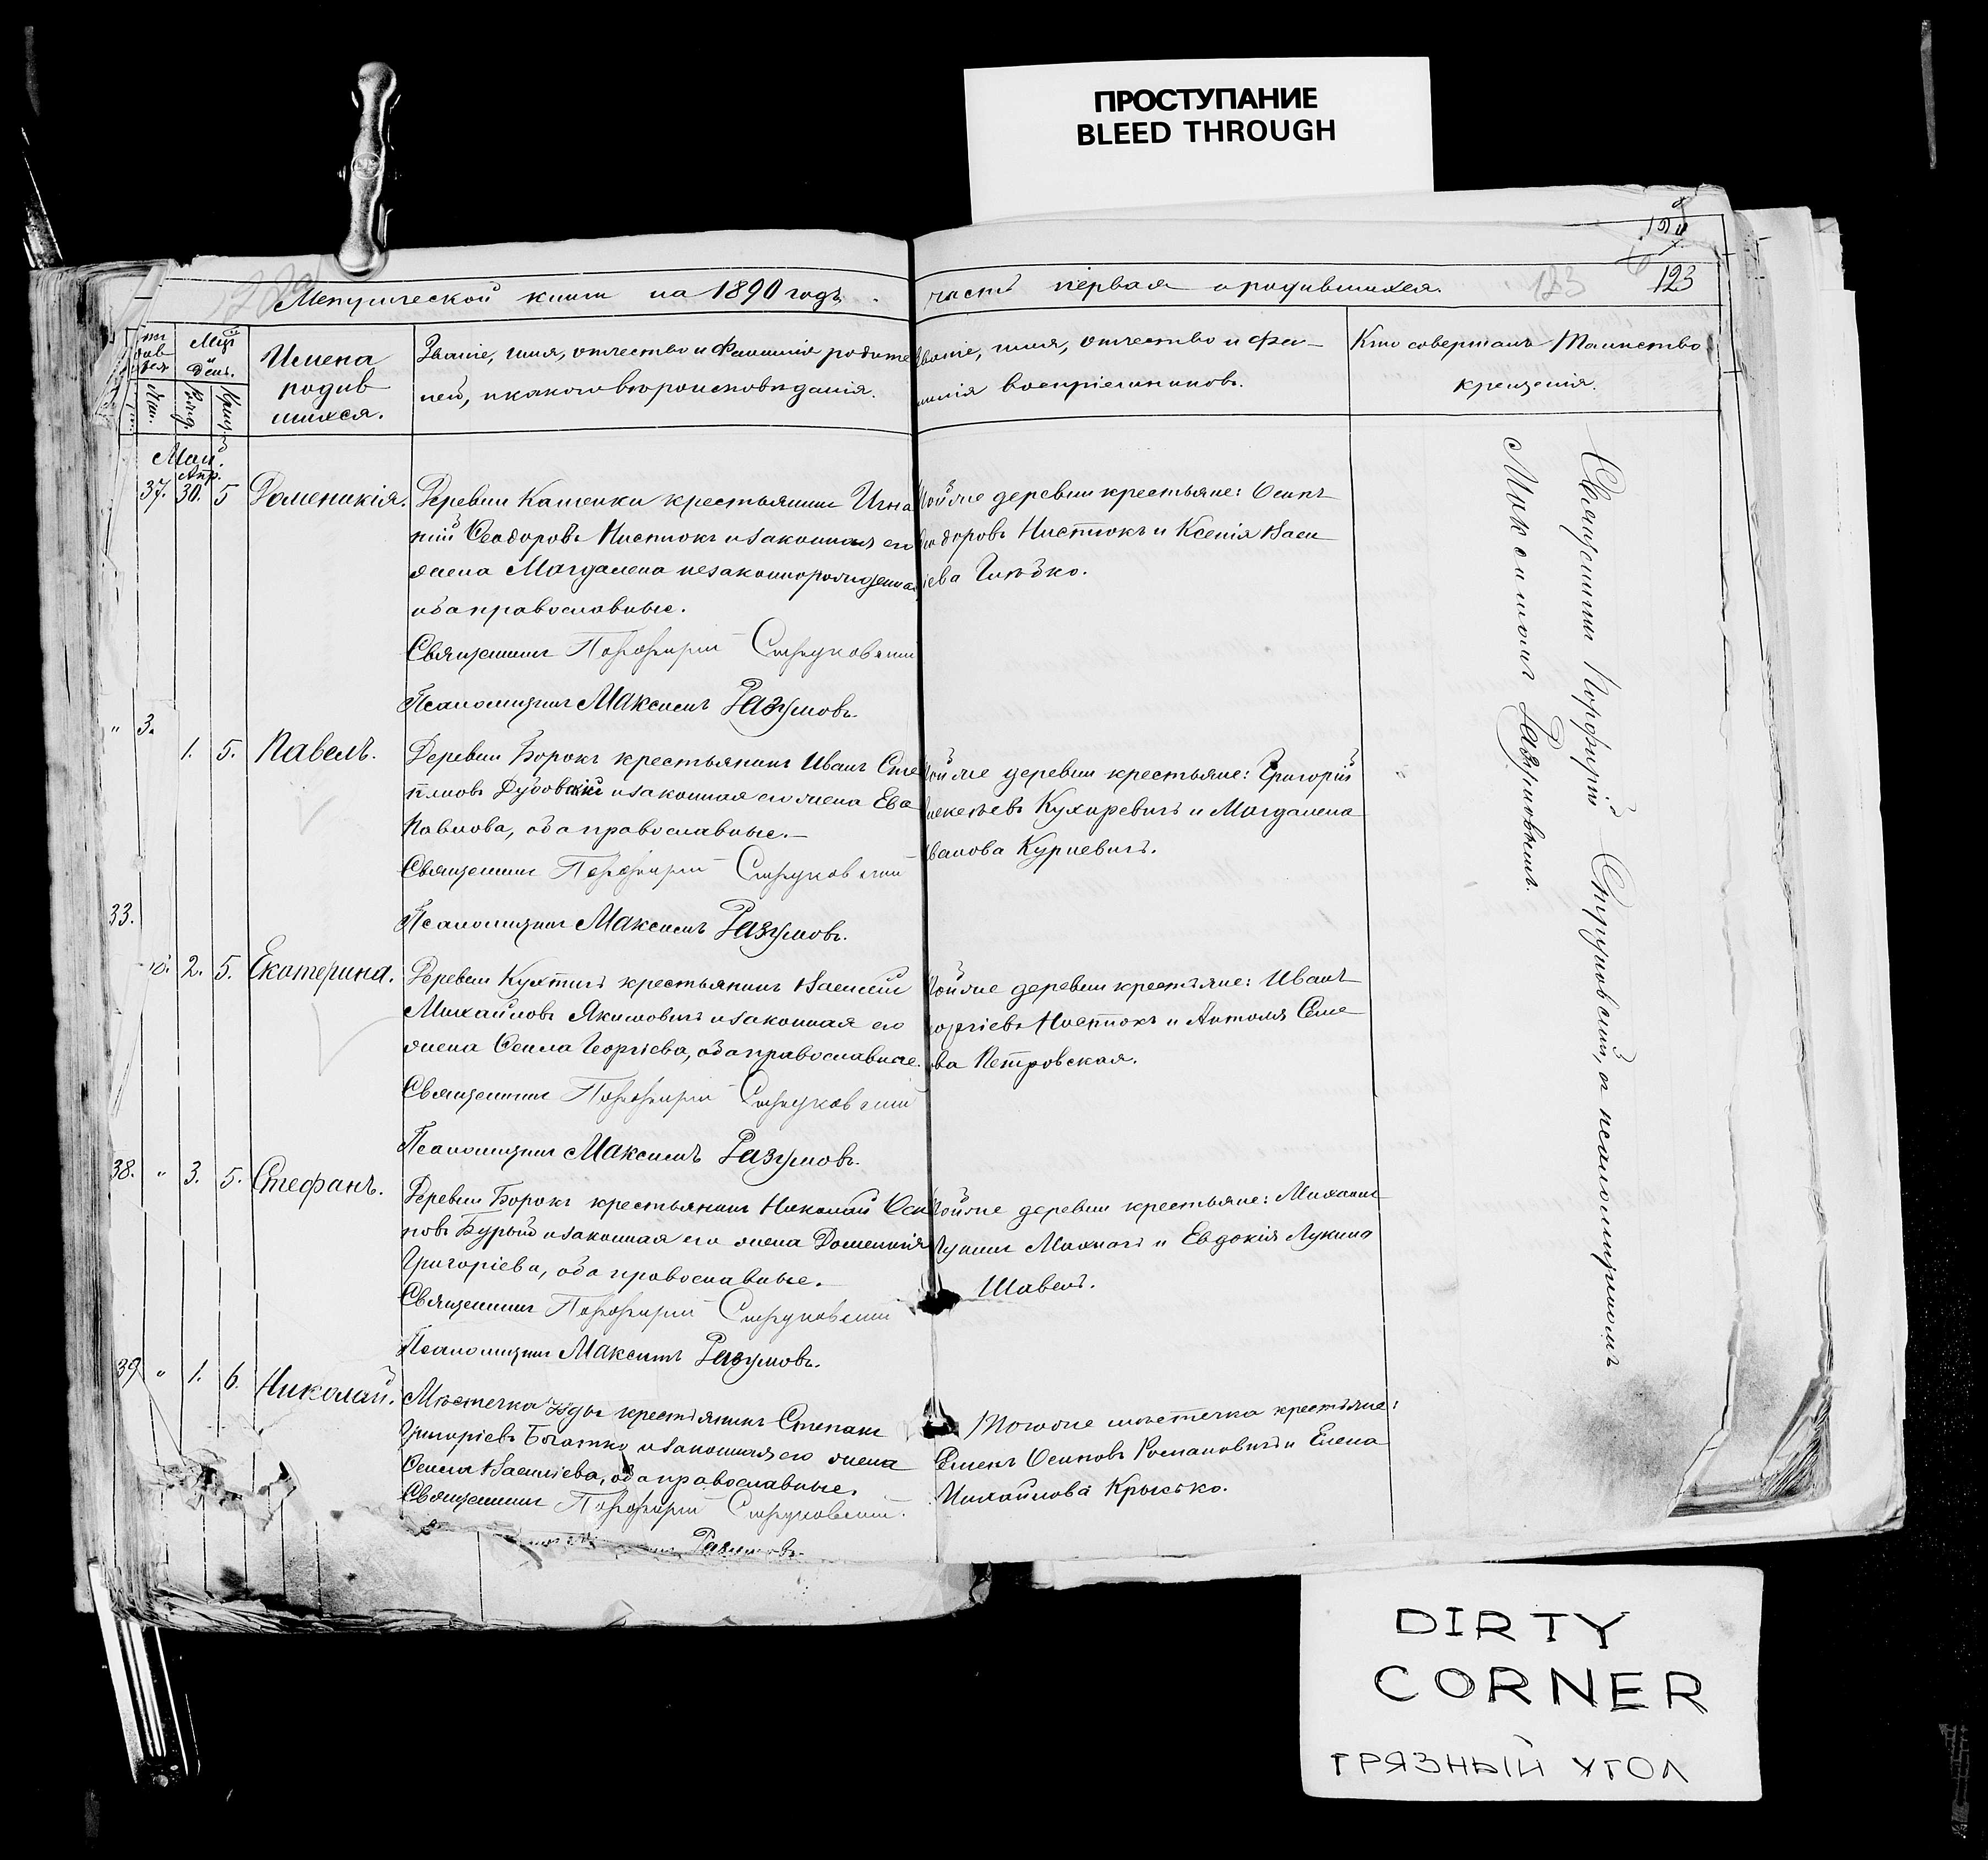 ПРОСТУПАНИЕ
BLEED THROUGH
123
123
Метрической книги на 1890 годъ.
часть первая о родившихся.
Имена
родив
шихся.
Званіе, имя, отчество и фамилія родите
лей, и какого вѣроисповѣданія.
Званіе, имя, отчество и фа-
милія воспріемниковъ.
Кто совершалъ Таинство
крещенія.
Май.
Апр.
37. 30. 5 Доменикія.
Деревни Каменки крестьянинъ Игна
тій Ѳеодоровъ и законная его
жена Магдалена незаконнорожденная
оба православные.
Священникъ Порфирій Струковскій
Псаломщикъ Максимъ Разумовъ.
Той же деревни крестьяне: Осипъ
Ѳеодоровъ и Ксенія Васи
ліева
1. 5. Павелъ.
Деревни Борокъ крестьянинъ Иванъ Сте
пановъ Дубовскій и законная его жена Ева
Павлова, оба православные.-
Священникъ Порфирій Струковскій
Псаломщикъ Максимъ Разумовъ.
Той же деревни крестьяне: Григорій
Алексѣевъ Кухаревичъ и Магдалена
Иванова Курневичъ.
33.
2. 5. Екатерина.
Деревни крестьянинъ Василій
Михайловъ Якимовичъ и законная его
жена Ѳекла Георгіева, оба православные.
Священникъ Порфирій Струковскій
Псаломщикъ Максимъ Разумовъ.
Той же деревни крестьяне: Иванъ
Георгіевъ и Семе
ова Петровская.
38. " 3. 5. Стефанъ.
Деревни Борокъ крестьянинъ Николай Оси
повъ Бурый и законная его жена Доменикія
Григоріева, оба православные.
Священникъ Порфирій Струковскій
Псаломщикъ Максимъ Разумовъ.
Той же деревни крестьяне: Михаилъ
и Евдокія Лукина
Шавель.
39 " 1. 6. Николай.
Мѣстечка Узды крестьянинъ Степанъ
Григоріевъ и законная его жена
Ѳекла Васильева, оба православные.
Священникъ Порфирій Струковскій.
Разумовъ.
Того же мѣстечка крестьяне:
Осиповъ Романовичъ и Елена
Михайлова Крысько.
Священникъ Порфирій Струковскій, съ псаломщикомъ
Максимомъ Разумовымъ.
DIRTY
CORNER
ГРЯЗНЫЙ УГОЛ